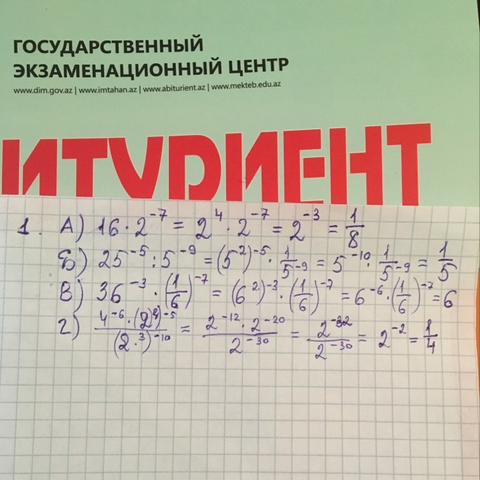 ГОСУДАРСТВЕННЫЙ
ЭКЗАМЕНАЦИОННЫЙ ЦЕНТР
www.dim.gov.az | www.imtahan.az | www.abiturient.az | www.mekteb.edu.az
ИТУРИЕНТ
1. А) 16 · 2⁻⁷ = 2⁴ · 2⁻⁷ = 2⁻³ = 1/8
Б) 25⁻⁵ : 5⁻⁹ = (5²)⁻⁵ · 1/5⁻⁹ = 5⁻¹⁰ · 1/5⁻⁹ = 1/5
В) 36⁻³ · (1/6)⁻⁷ = (6²)⁻³ · (1/6)⁻⁷ = 6⁻⁶ · (1/6)⁻⁷ = 6
г) 4⁻⁶ · (2⁴)⁻⁵ / (2³)⁻¹⁰ = 2⁻¹² · 2⁻²⁰ / 2⁻³⁰ = 2⁻³² / 2⁻³⁰ = 2⁻² = 1/4